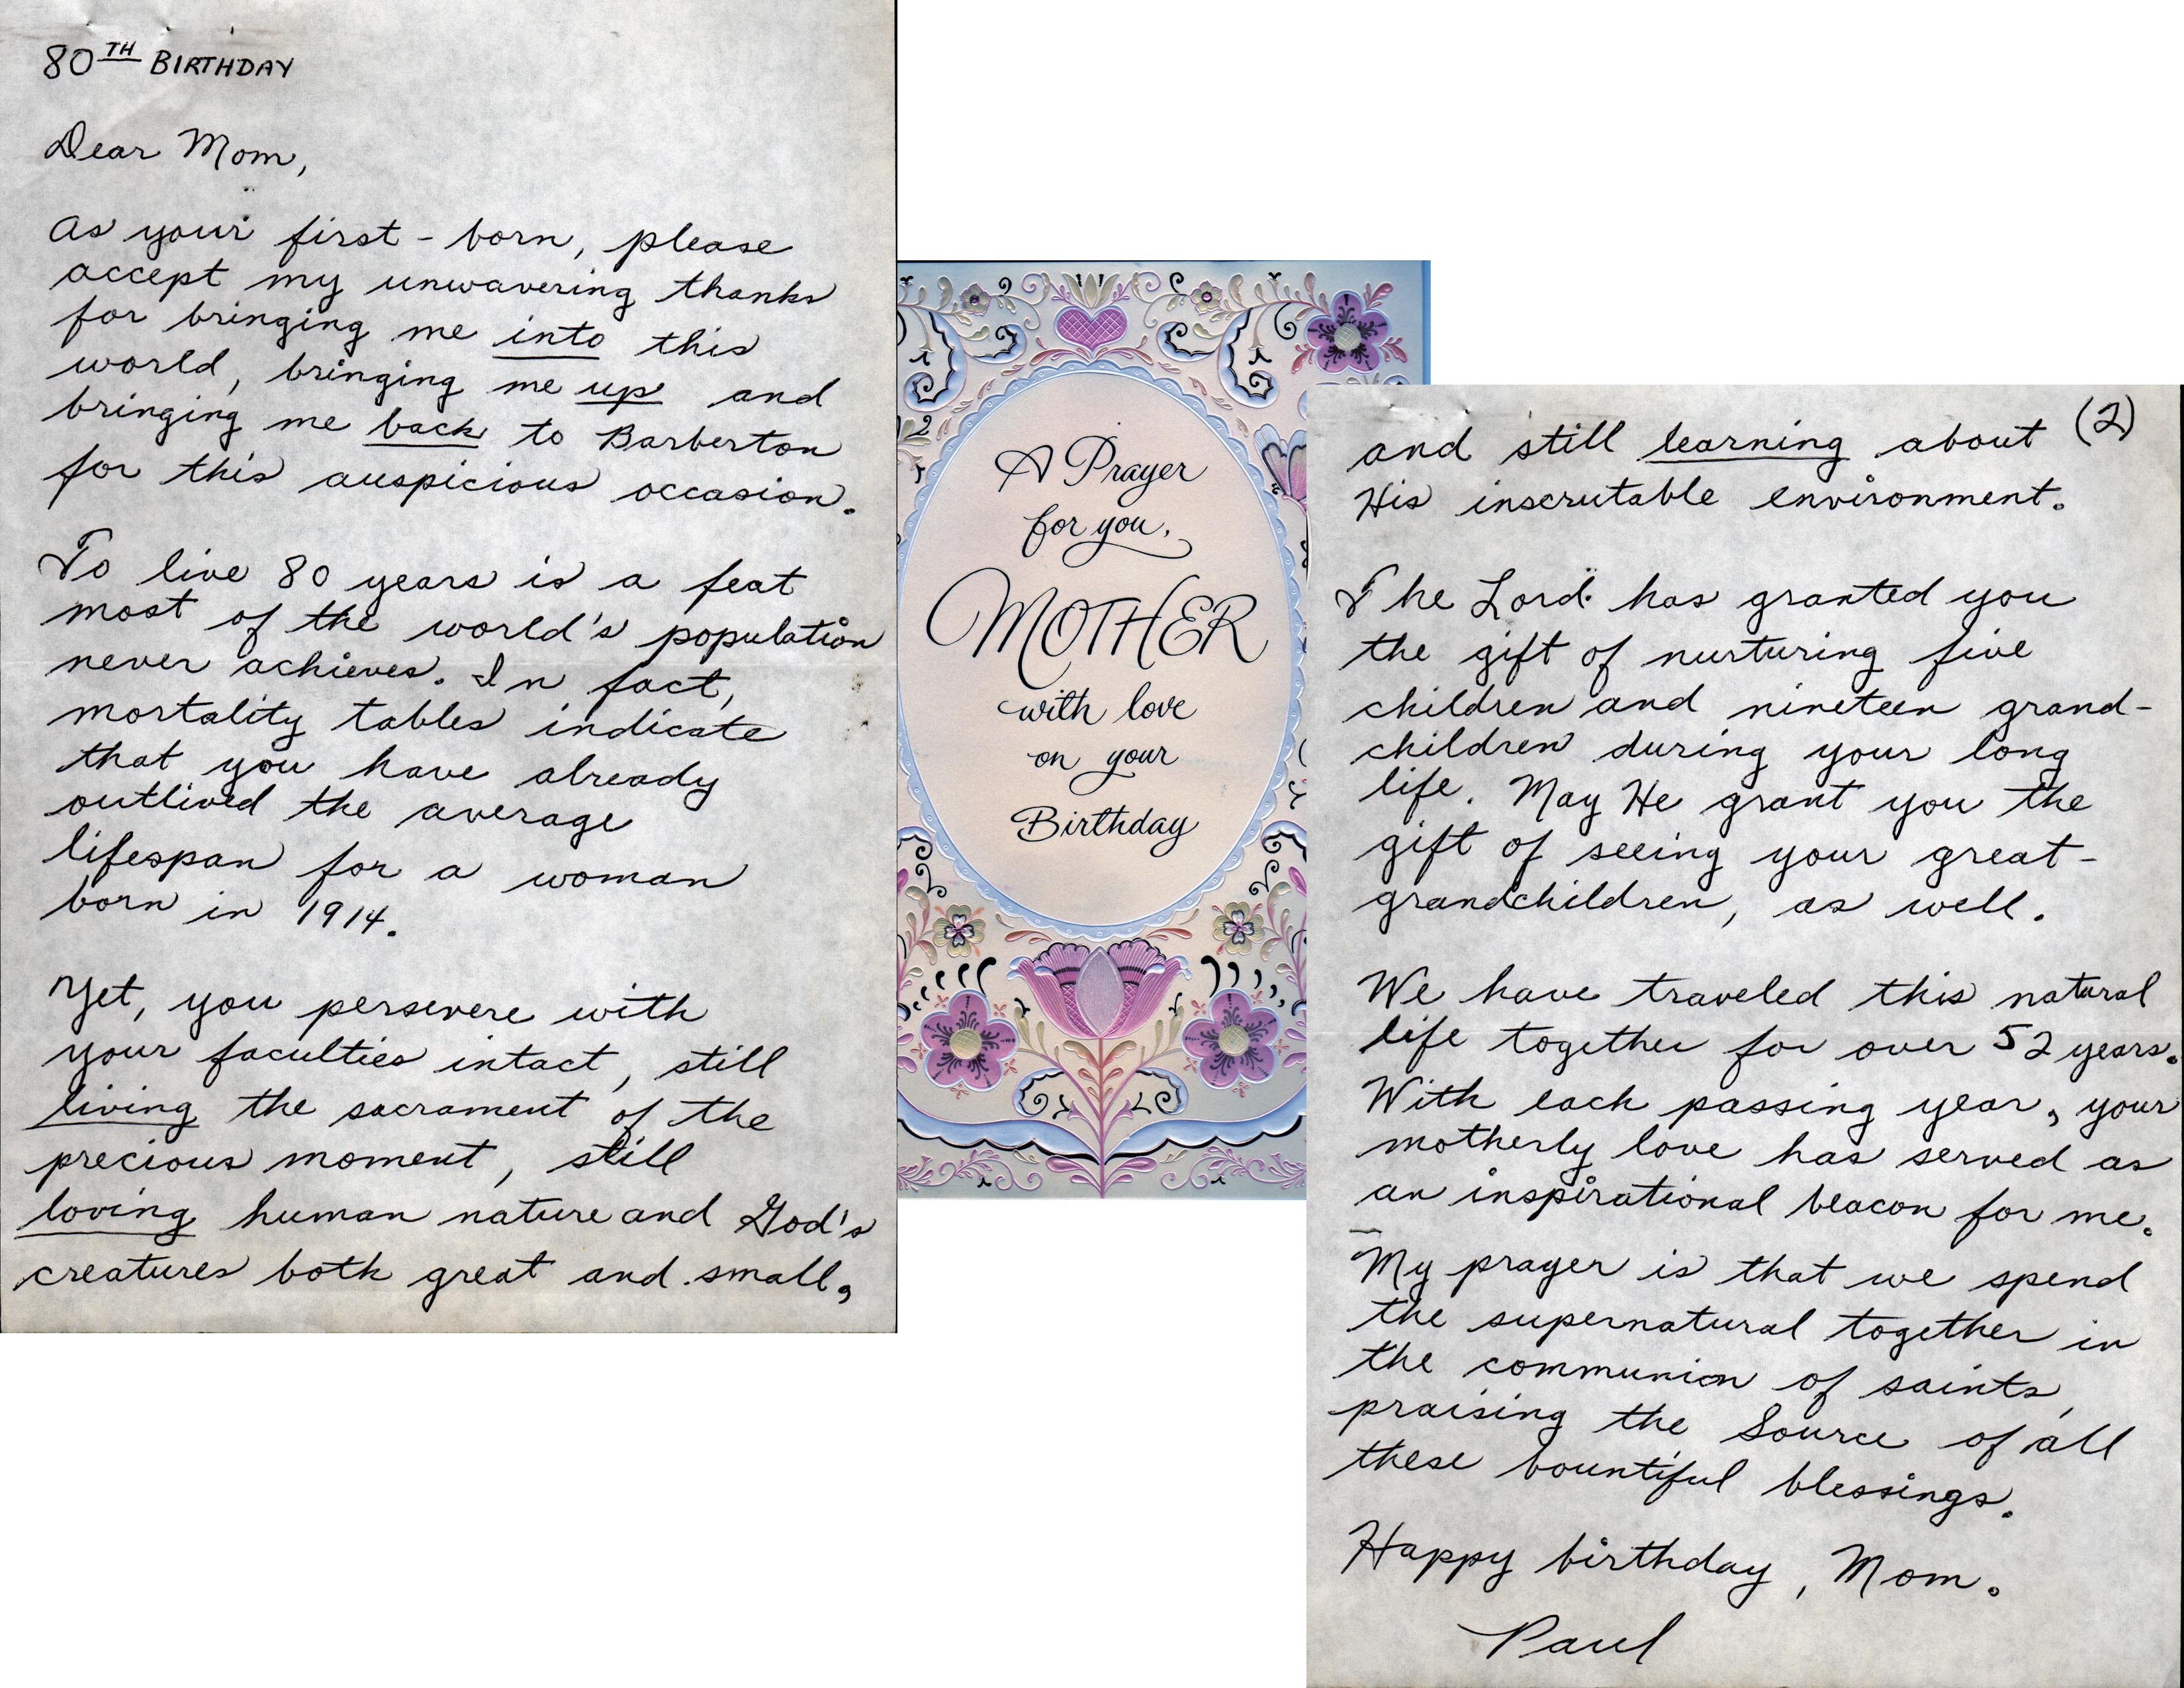 80TH BIRTHDAY
Dear Mom,
As your first-born, please
accept my unwavering thanks
for bringing me into this
world, bringing me up and
bringing me back to Barberton
for this auspicious occasion.
To live 80 years is a feat
most of the world's population
never achieves. In fact,
mortality tables indicate
that you have already
outlived the average
lifespan for a woman
born in 1914.
Yet, you persevere with
your faculties intact, still
living the sacrament of the
precious moment, still
loving human nature and God's
creatures both great and small,
A Prayer
for you,
MOTHER
with love
on your
Birthday
(2)
and still learning about
His inscrutable environment.
The Lord has granted you
the gift of nurturing five
children and nineteen grand-
children during your long
life. May He grant you the
gift of seeing your great-
grandchildren, as well.
We have traveled this natural
life together for over 52 years.
With each passing year, your
motherly love has served as
an inspirational beacon for me.
My prayer is that we spend
the supernatural together in
the communion of saints,
praising the Source of all
these bountiful blessings.
Happy birthday, Mom.
Paul